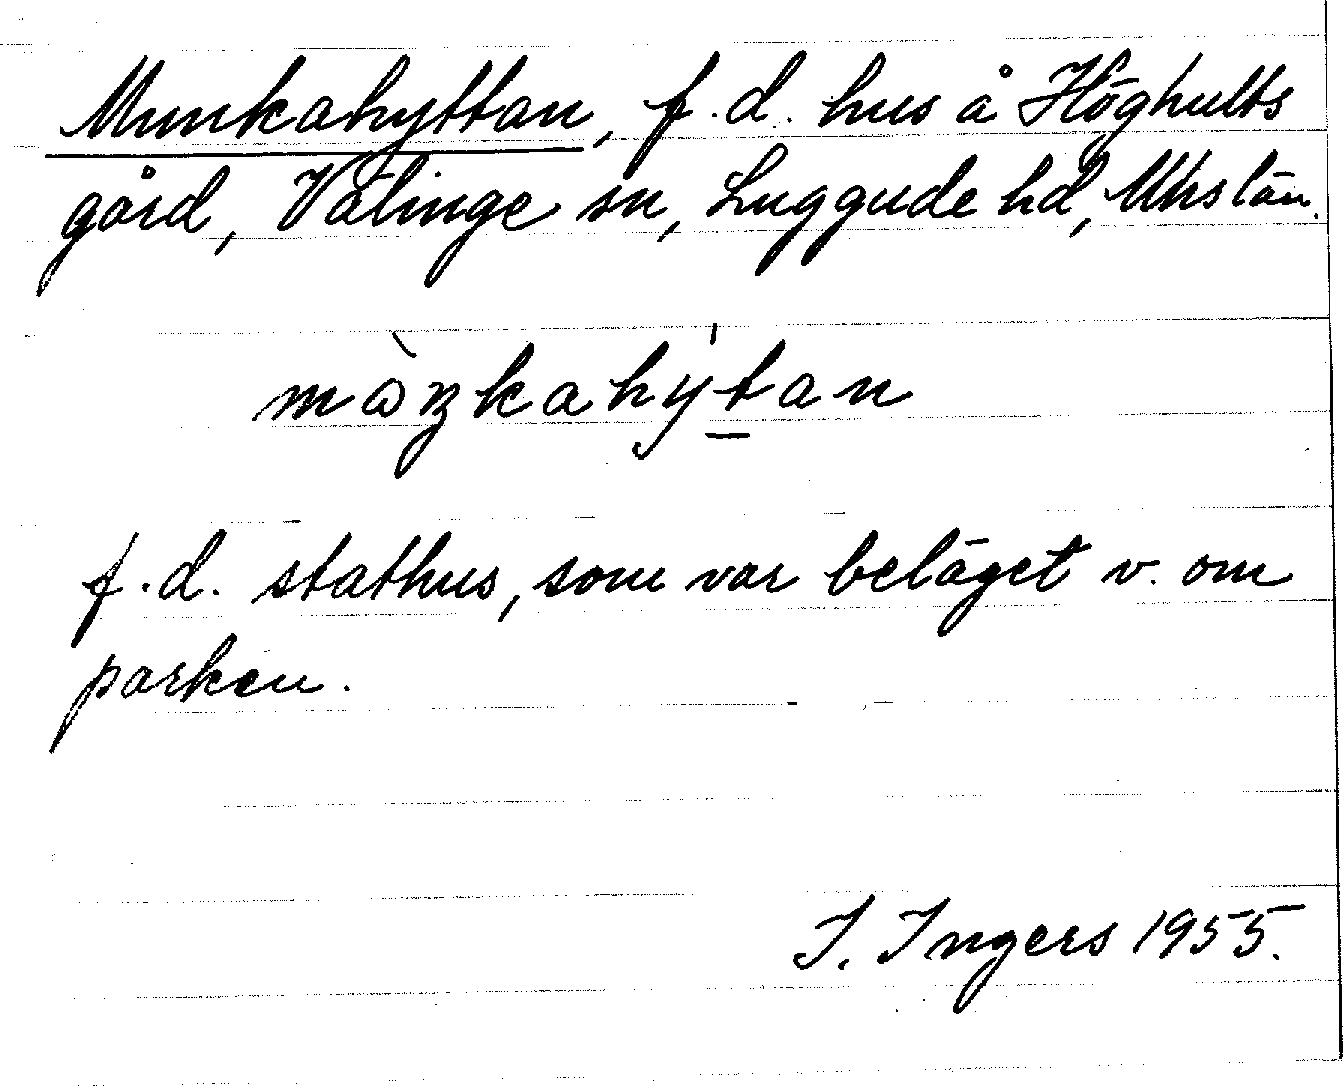 Munkahyttan, f.d. hus å Höghults
gård, Välinge sn, Luggude hd, Mhs län.
mὼŋkahy̍t̲an
f.d. stathus, som var beläget v. om
parken.
I. Ingers 1955.